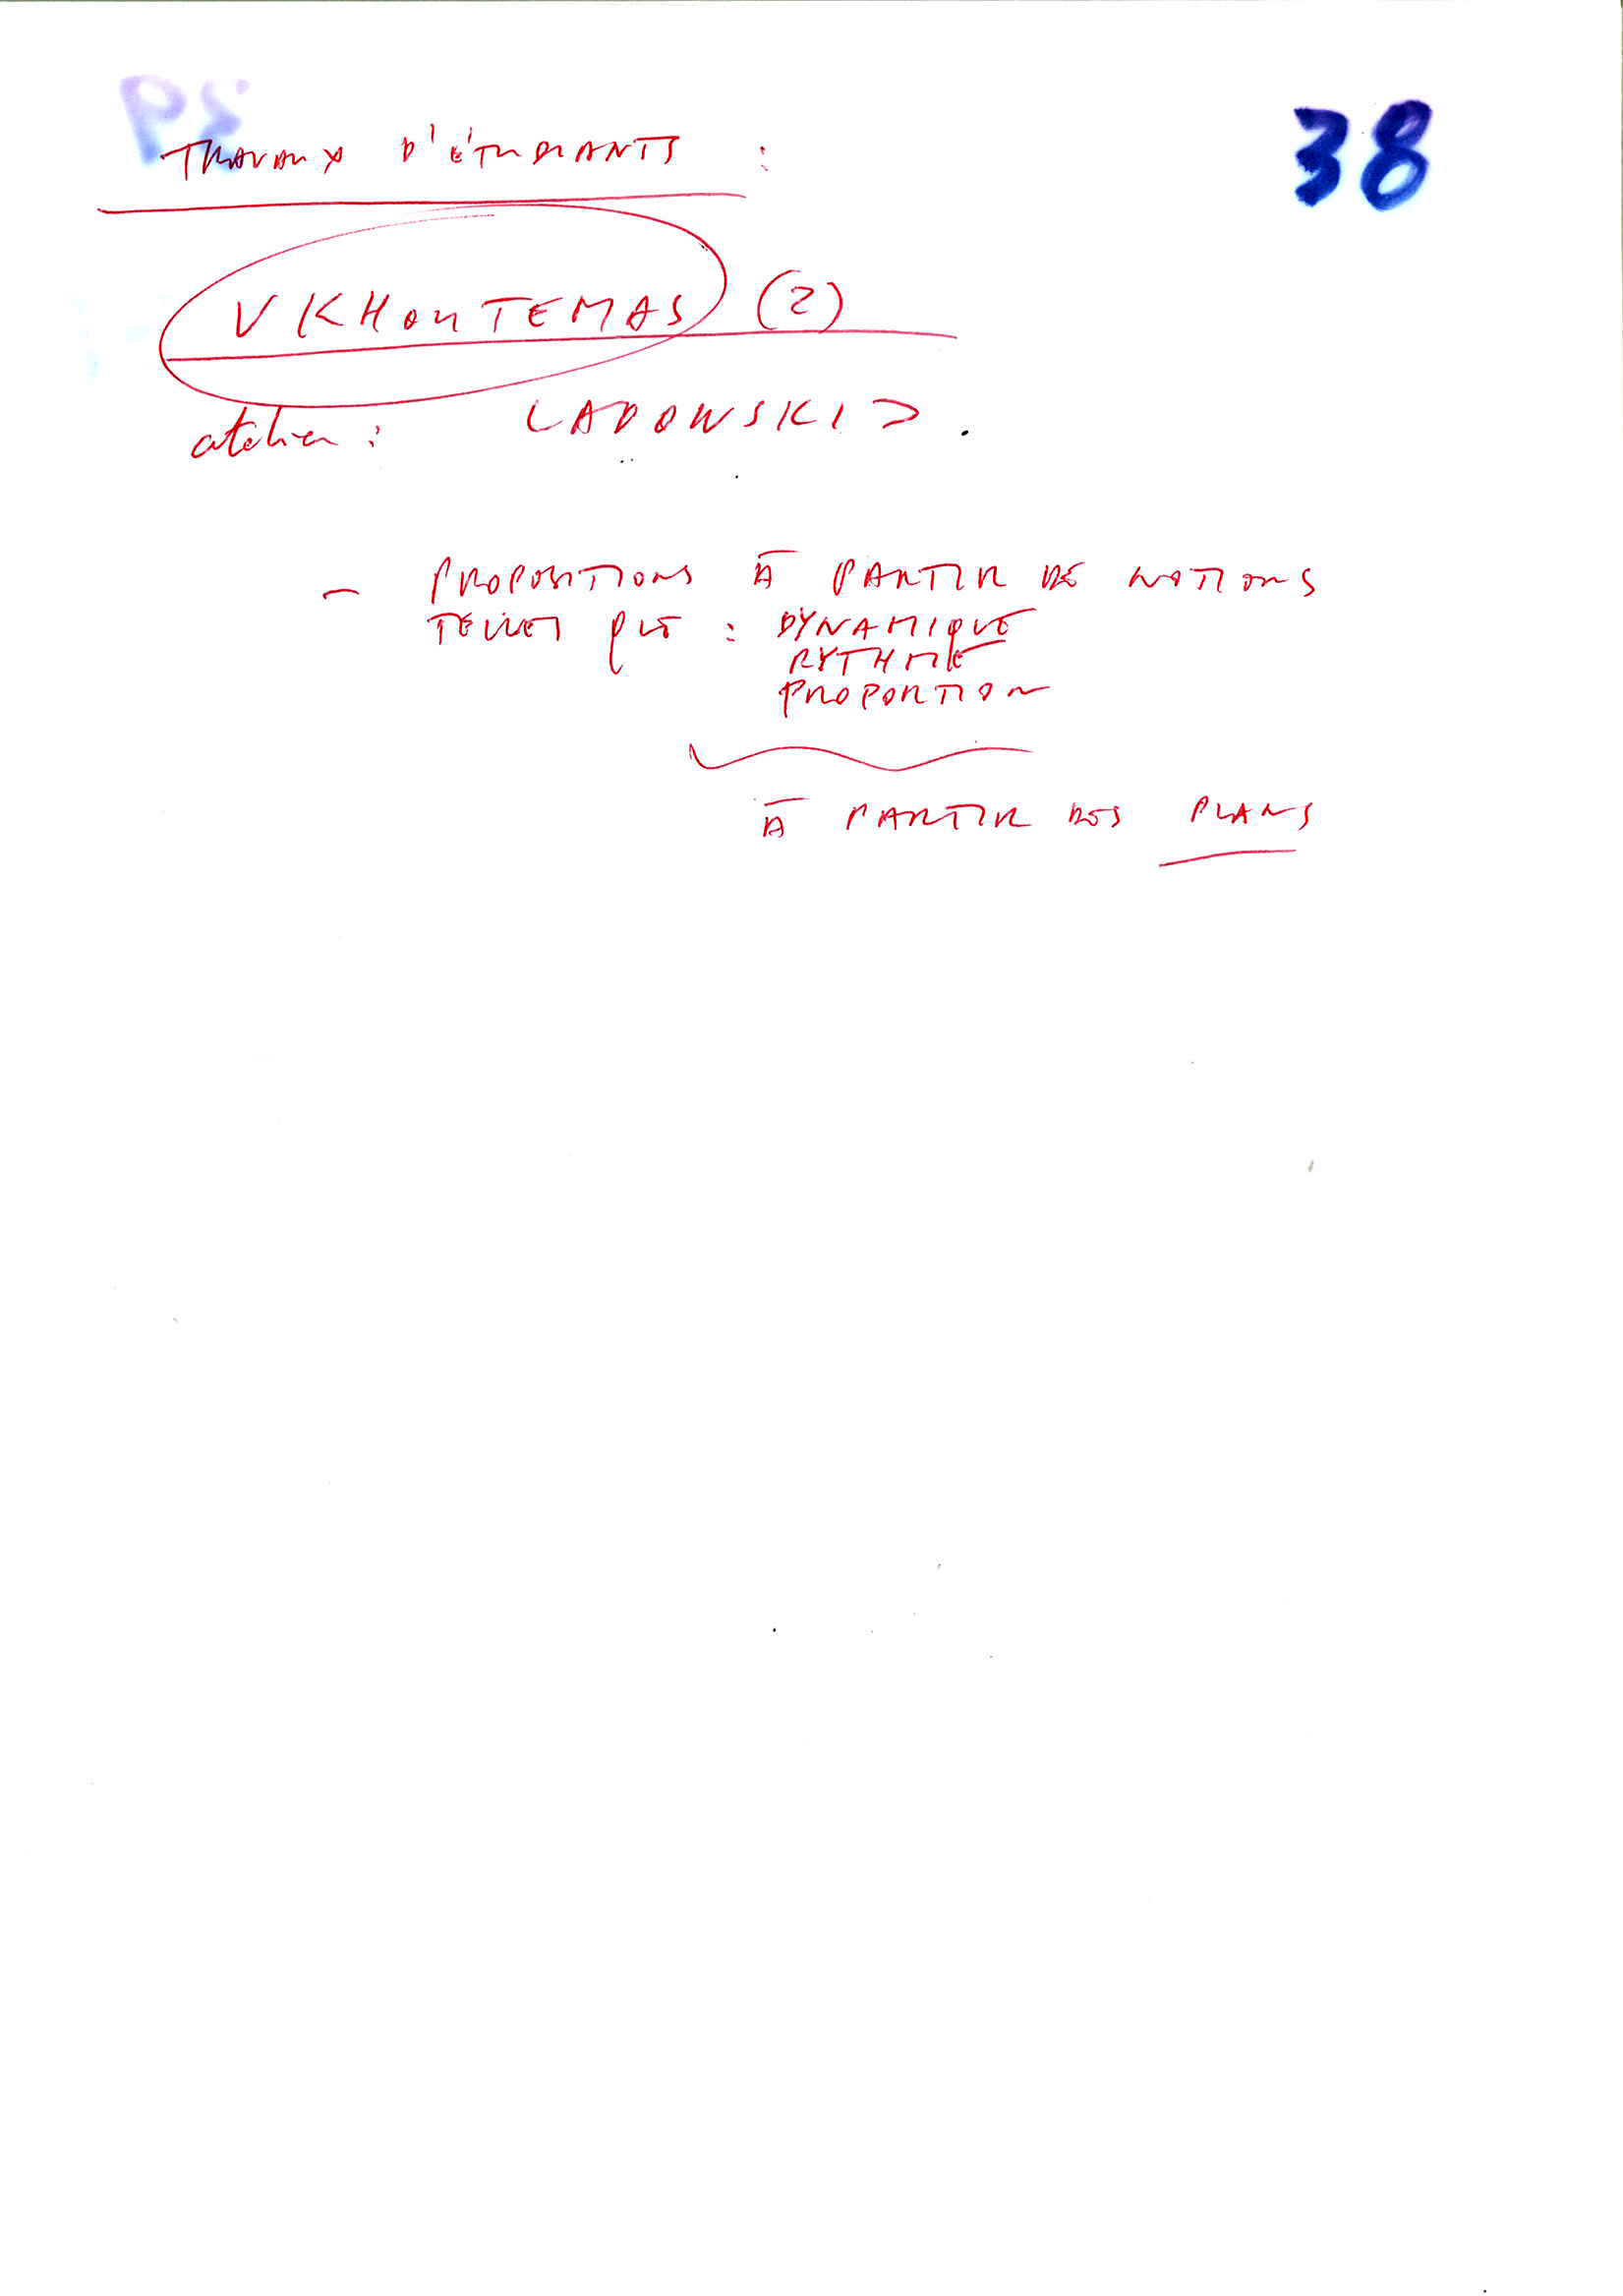 38
TRAVAUX D'ÉTUDIANTS :
VKHOUTEMAS (2)
atelier : LADOWSKI.
- PROPOSITIONS À PARTIR DE NOTIONS
TELLES QUE : DYNAMIQUE
RYTHME
PROPORTION
À PARTIR DES PLANS